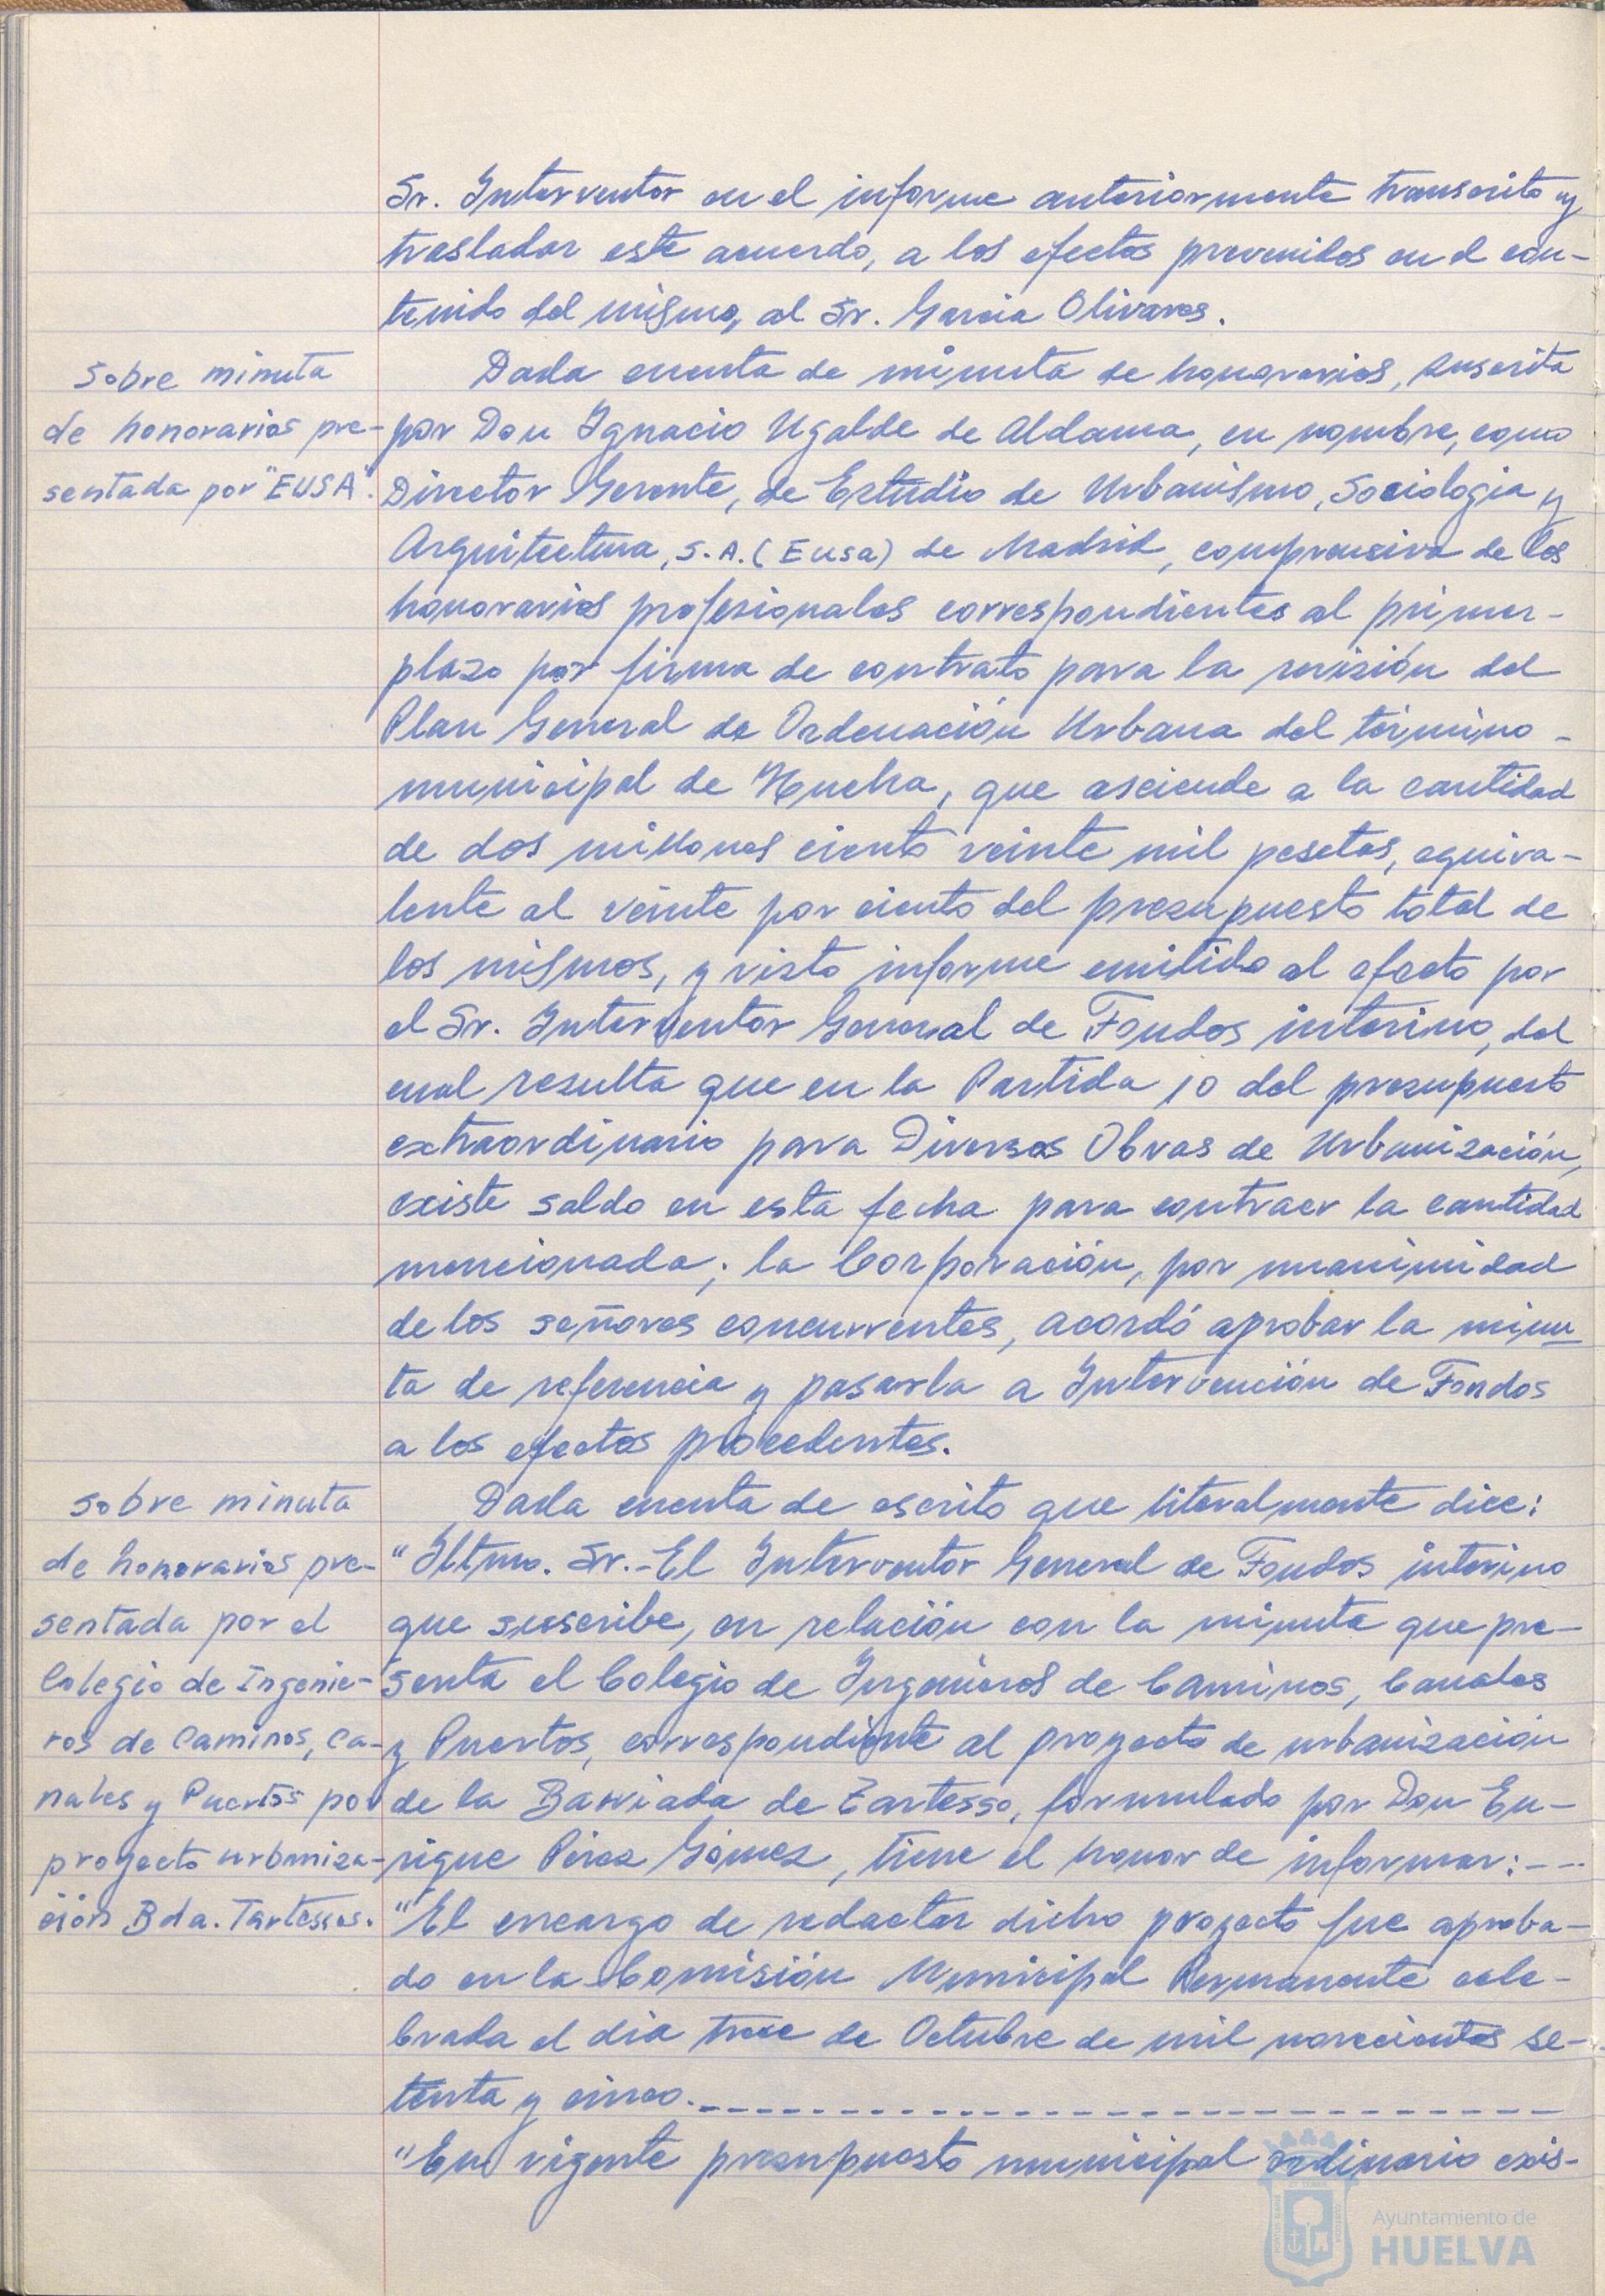 Sr. Interventor en el informe anteriormente transcrito y
trasladar este acuerdo, a los efectos prevenidos en el con-
tenido del mismo, al Sr. Garcia Olivares.
Sobre minuta
de honorarios pre-
sentada por "EUSA".
Dada cuenta de minuta de honorarios, suscrita
por Don Ignacio Ugalde de Aldama, en nombre, como
Director Gerente, de Estudio de Urbanismo, Sociologia y
Arquitectura, S.A. (Eusa) de Madrid, comprensiva de los
honorarios profesionales correspondientes al primer-
plazo por firma de contrato para la revisión del
Plan General de Ordenación Urbana del término -
municipal de Huelva, que asciende a la cantidad
de dos millones ciento veinte mil pesetas, equiva-
lente al veinte por ciento del presupuesto total de
los mismos, y visto informe emitido al efecto por
el Sr. Interventor General de Fondos interino, del
cual resulta que en la Partida 10 del presupuesto
extraordinario para Diversas Obras de Urbanización,
existe saldo en esta fecha para contraer la cantidad
mencionada; la Corporación, por unanimidad
de los señores concurrentes, acordó aprobar la minu
ta de referencia y pasarla a Intervención de Fondos
a los efectos procedentes.
sobre minuta
de honorarios pre-
sentada por el
Colegio de Ingenie-
ros de Caminos, Ca-
nales y Puertos por
proyecto urbaniza-
ción Bda. Tartessos.
Dada cuenta de escrito que literalmente dice:
"Iltmo. Sr.- El Interventor General de Fondos interino
que suscribe, en relación con la minuta que pre-
senta el Colegio de Ingenieros de Caminos, Canales
y Puertos, correspondiente al proyecto de urbanización
de la Barriada de Tartesso, formulado por Don En-
rique Pérez Gómez, tiene el honor de informar: ---
"El encargo de redactar dicho proyecto fue aproba-
do en la Comisión Municipal Permanente cele-
brada el dia trece de Octubre de mil novecientos se-
tenta y cinco.------------------------------
"En vigente presupuesto municipal ordinario exis-
Ayuntamiento de
HUELVA